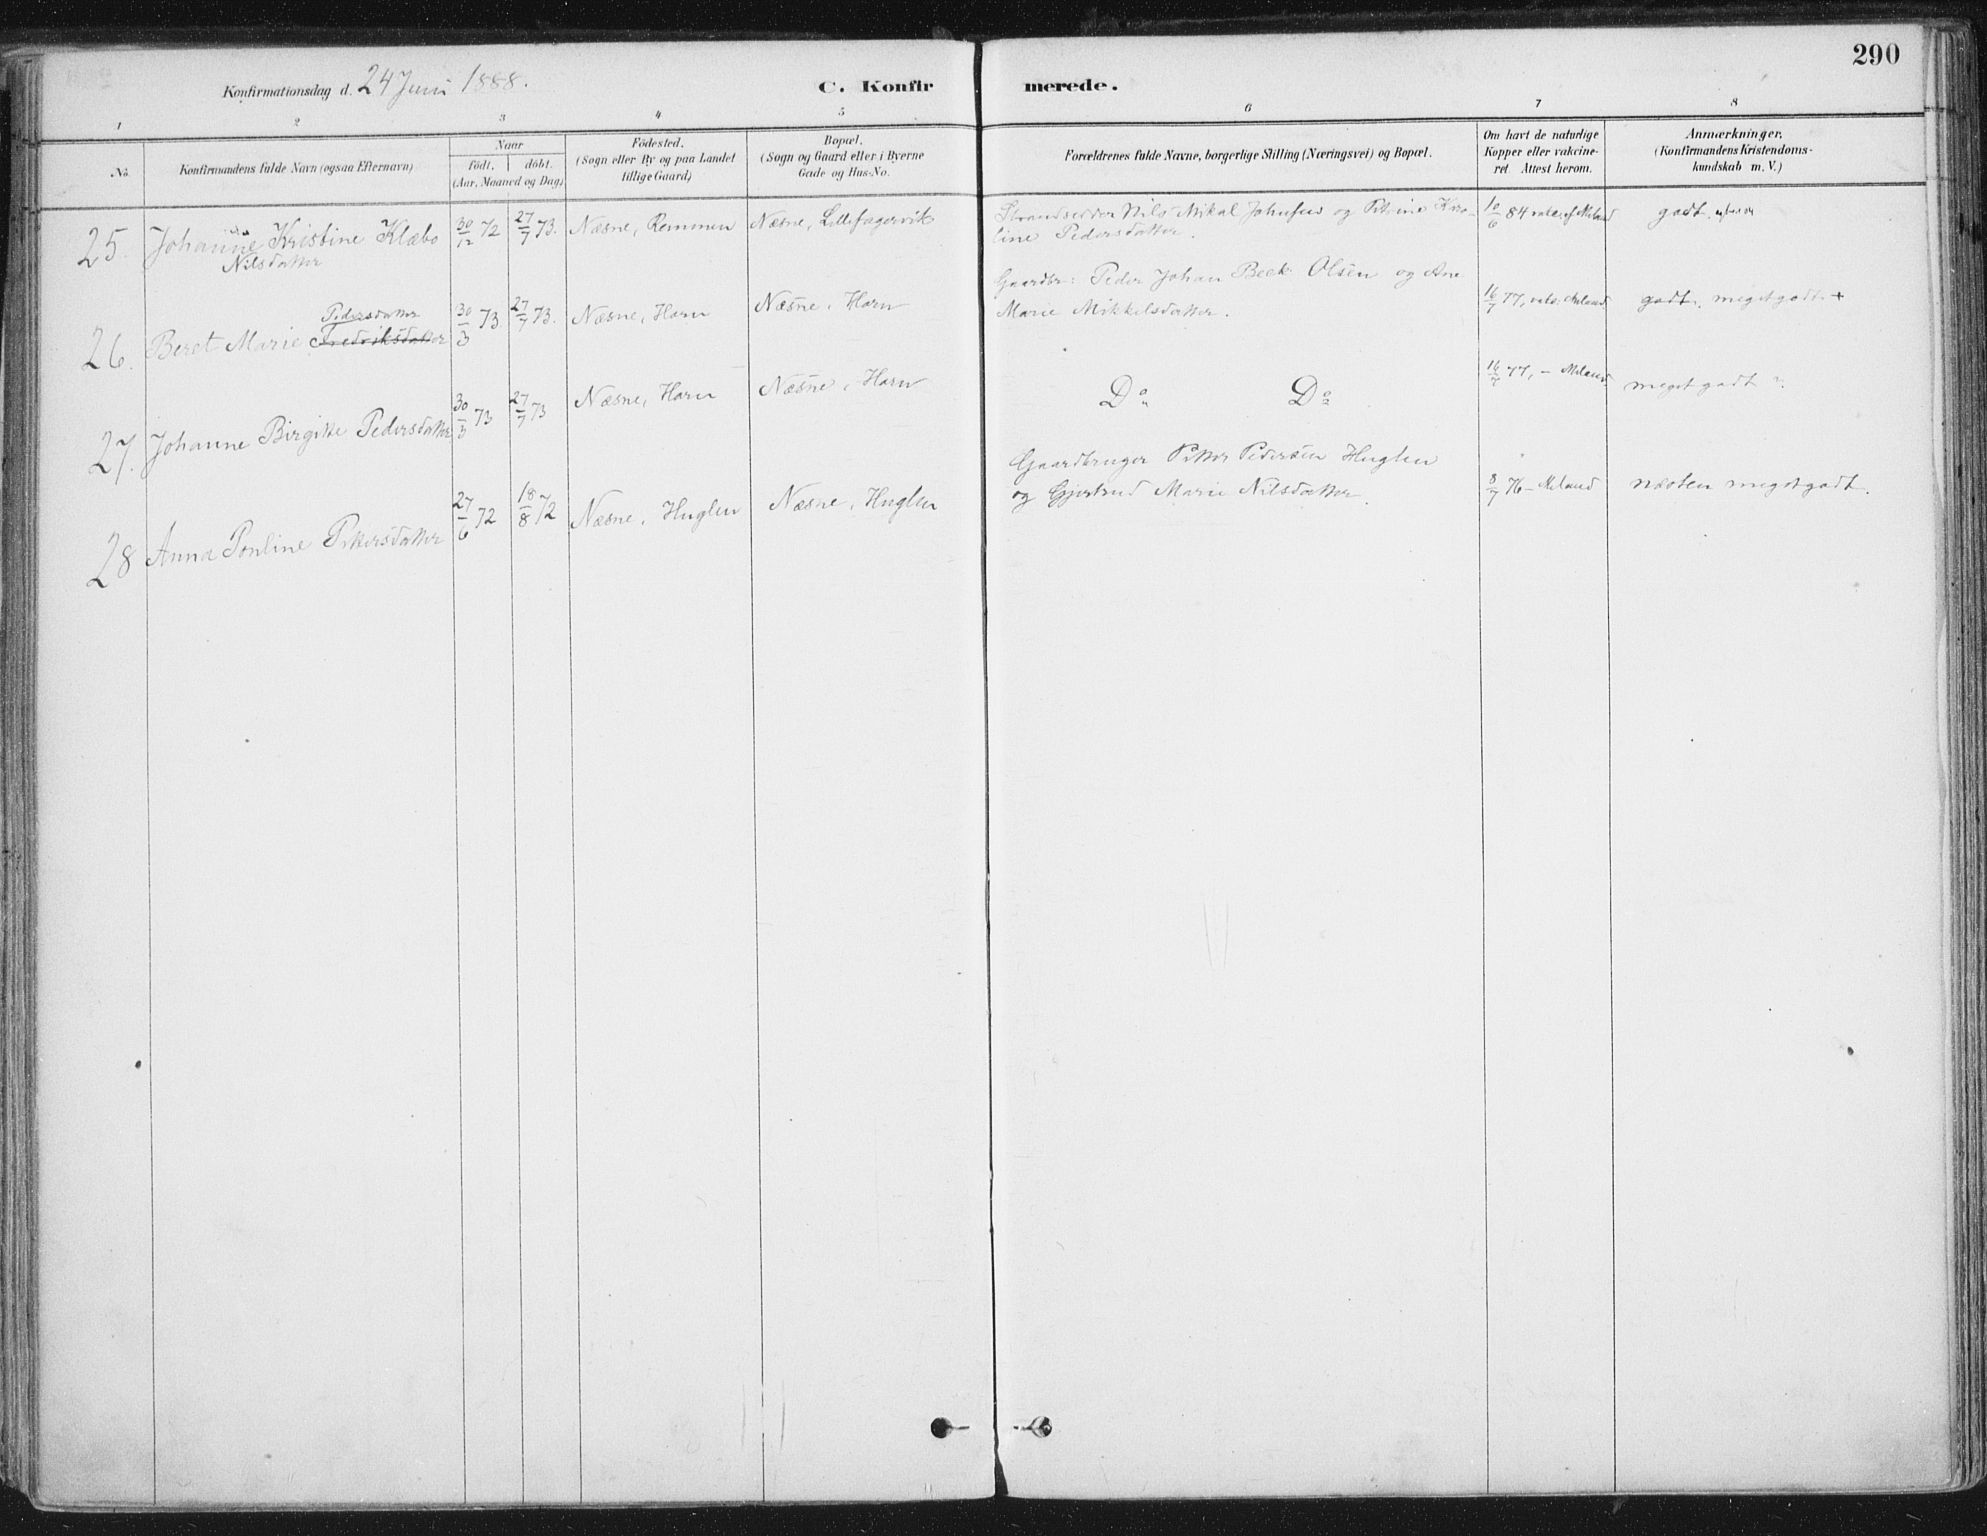 290
Konfirmationsdag d. 24 Juni 1888.
C. Konfirmerede.
1 2 3 4 5 6 7 8
No.
Konfirmandens fulde Navn (ogsaa Efternavn)
Naar
födt. döbt.
(Aar, Maaned og Dag)
Födested.
(Sogn eller By og paa Landet
tillige Gaard)
Bopæl.
(Sogn og Gaard eller i Byerne
Gade og Hus-No.
Forældrenes fulde Navne, borgerlige Stilling (Næringsvei) og Bopæl.
Om havt de naturlige
Kopper eller vakcine-
ret. Attest herom.
Anmærkninger,
(Konfirmandens Kristendoms-
kundskab m. V.)
25. Johanne Kristine Klæbo 30/12 72 27/7 73. Næsne, Remmen Næsne, Lillefagervik Strandsidder Nils Mikal Johnsen og Petrine Karo- 10/6 84 vakc. af Meland godt.
Nilsdatter line Pedersdatter.
26. Beret Marie Fredriksdatter Pedersdatter 30/3 73 27/7 73. Næsne, Horn Næsne, Horn Gaardbr: Peder Johan Beck Olsen og Ane 16/7 77, vakc. Meland godt. meget godt +
Marie Mikkelsdatter.
27. Johanne Birgitte Pedersdatter 30/3 73 27/7 73 Næsne, Horn Næsne, Horn Do Do 16/7 77, – Meland meget godt ?.
28 Anna Pouline Pettersdatter 27/6 72 18/8 72 Næsne, Huglen Næsne, Huglen Gaardbruger Petter Pedersen Huglen 8/7 76 – Meland næsten meget godt.
og Gjertrud Marie Nilsdatter.